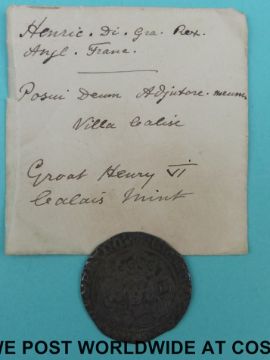 Henric. Di. Gra. Rex.
Angl. Franc.
Posui Deum Adjutore. meum.
Villa Calisi
Groat Henry VI
Calais Mint
WE POST WORLDWIDE AT COS